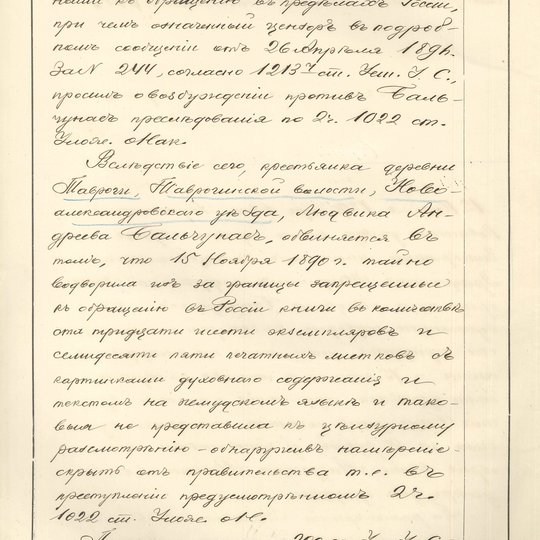 ными къ обращенію въ предѣлахъ Россіи,
при чемъ означенный цензоръ въ подроб-
номъ сообщеніи отъ 26 Апрѣля 189
за № 244, согласно 1213 ст. Уст. У. С.,
проситъ о возбужденіи противъ Баль-
чунасъ преслѣдованія по 2 ч. 1022 ст.
Улож. о Нак.
Вслѣдствіе сего, крестьянка деревни
Таврочи, Таврогинской волости, Ново-
александровскаго уѣзда, Людвика Ан-
дреева Бальчунасъ, обвиняется въ
томъ, что 15 Ноября 1890 г. тайно
водворила изъ за границы запрещенныя
къ обращенію въ Россіи книги въ количествѣ
ста тридцати шести экземпляровъ и
семидесяти пяти печатныхъ листковъ съ
картинками духовнаго содержанія и
текстомъ на жмудскомъ языкѣ и тако-
выя не представила къ цензурному
разсмотрѣнію - обнаруживъ намѣреніе
скрыть отъ правительства т. е. въ
преступленіи предусмотрѣнномъ 2 ч.
1022 ст. Улож. о Н.